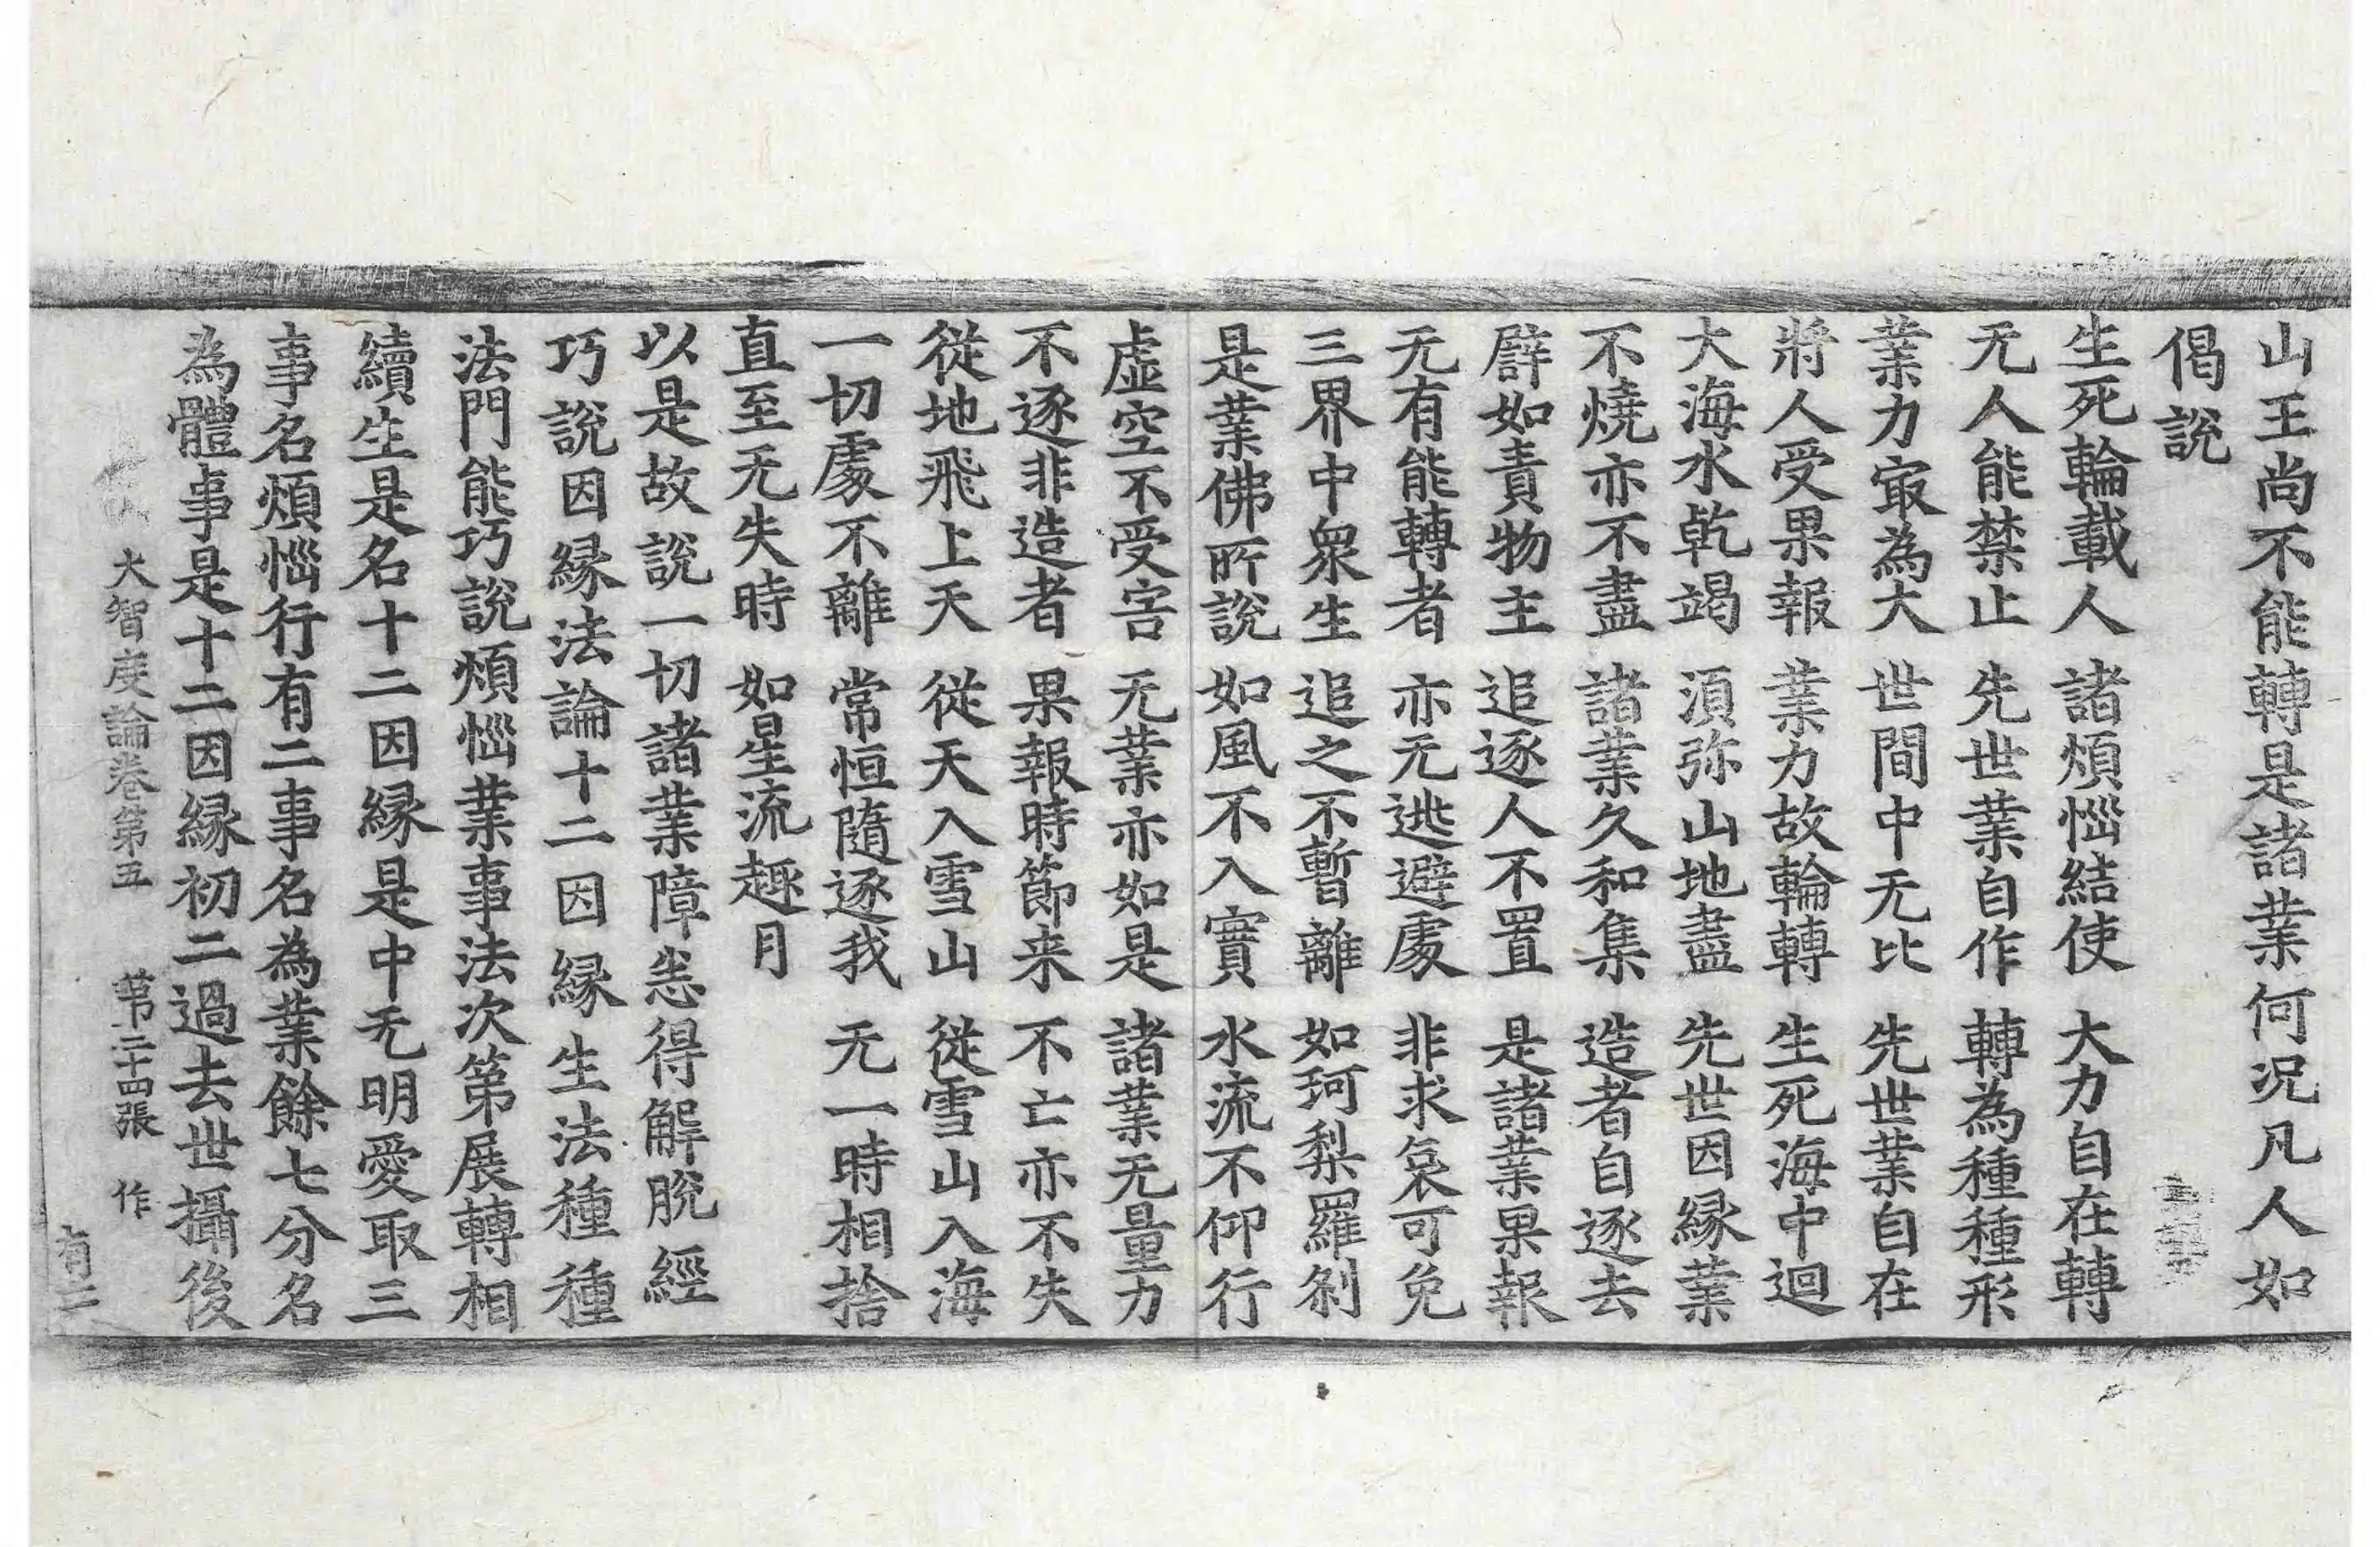 山王尚不能轉是諸業何況凡人如
偈說
生死輪載人 諸煩惱結使 大力自在轉
无人能禁止 先世業自作 轉為種種形
業力㝡為大 世間中无比 先世業自在
將人受果報 業力故輪轉 生死海中迴
大海水乾竭 須弥山地盡 先世因緣業
不燒亦不盡 諸業久和集 造者自逐去
譬如責物主 追逐人不置 是諸業果報
无有能轉者 亦无逃避處 非求哀可免
三界中衆生 追之不暫離 如珂梨羅刹
是業佛所說 如風不入實 水流不仰行
虛空不受害 无業亦如是 諸業无量力
不逐非造者 果報時節来 不亡亦不失
從地飛上天 從天入雪山 從雪山入海
一切處不離 常恒隨逐我 无一時相捨
直至无失時 如星流趣月
以是故說一切諸業障悉得解脫經
巧說因緣法論十二因緣生法種種
法門能巧說煩惱業事法次第展轉相
續生是名十二因緣是中无明愛取三
事名煩惱行有二事名為業餘七分名
為體事是十二因緣初二過去世攝後
大智度論卷第五 第二十四張 作